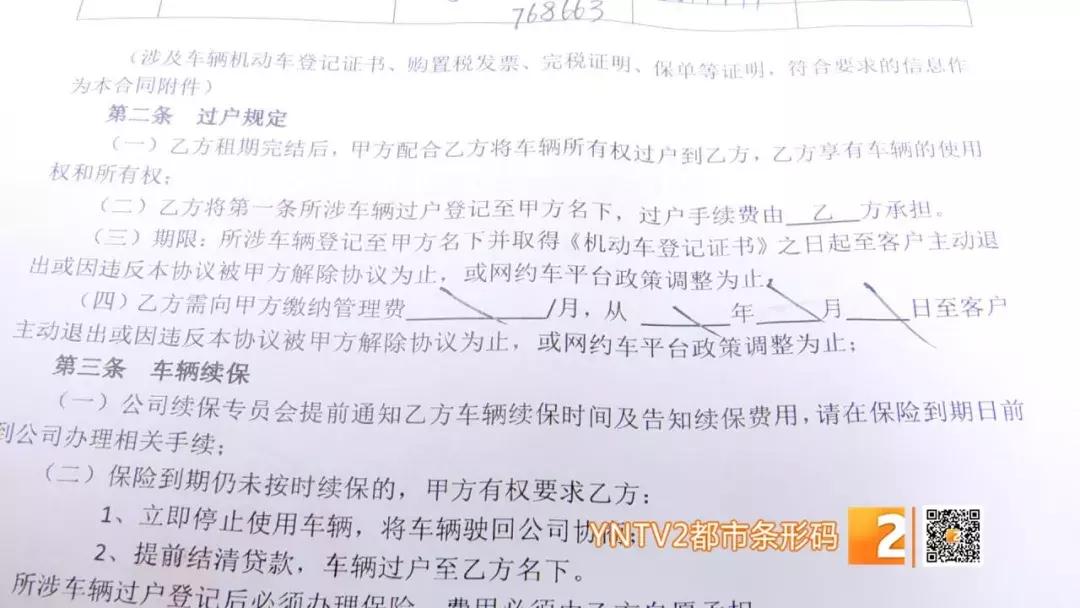 768663
（涉及车辆机动车登记证书、购置税发票、完税证明、保单等证明，符合要求的信息作
为本合同附件）
第二条 过户规定
（一）乙方租期完结后，甲方配合乙方将车辆所有权过户到乙方，乙方享有车辆的使用
权和所有权；
（二）乙方将第一条所涉车辆过户登记至甲方名下，过户手续费由 乙 方承担。
（三）期限：所涉车辆登记至甲方名下并取得《机动车登记证书》之日起至客户主动退
出或因违反本协议被甲方解除协议为止，或网约车平台政策调整为止。
（四）乙方需向甲方缴纳管理费________/月，从______年____月____日至客户
主动退出或因违反本协议被甲方解除协议为止，或网约车平台政策调整为止；
第三条 车辆续保
（一）公司续保专员会提前通知乙方车辆续保时间及告知续保费用，请在保险到期日前
到公司办理相关手续；
（二）保险到期仍未按时续保的，甲方有权要求乙方：
1、立即停止使用车辆，将车辆驶回公司协
2、提前结清贷款，车辆过户至乙方名下。
所涉车辆过户登记后必须办理保险，费用必须由乙方自愿承担
YNTV2都市条形码
2